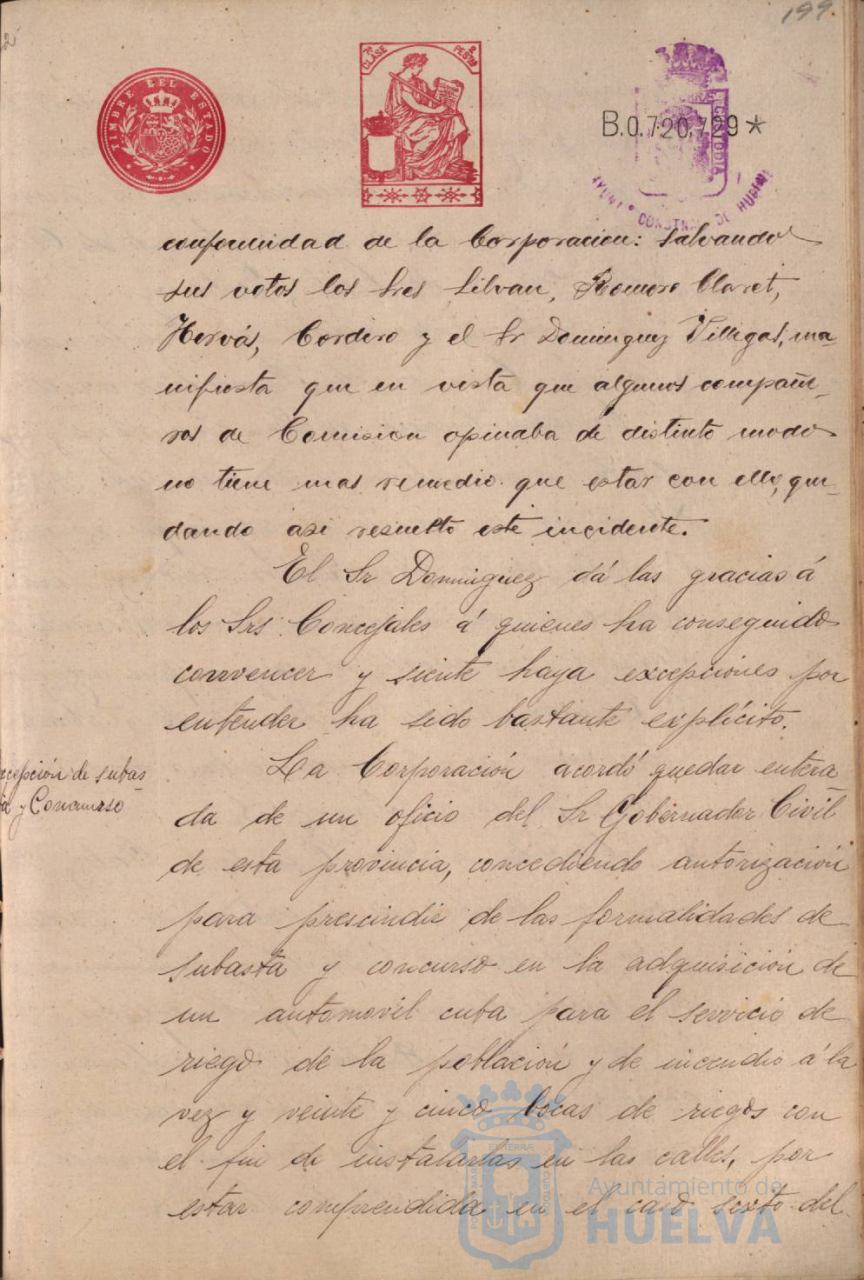 199.
2
TIMBRE DEL ESTADO
7ª CLASE
2 PESETAS
B.0.720.729*
CUSTODIA
AYUNT CONSTNAL DE HUELVA
conformidad de la Corporación: salvando
sus votos los Sres Silvan, Romero Claret,
Hervás, Cordero y el Sr Dominguez Villegas, ma-
nifiesta que en vista que algunos compañe-
ros de Comisión opinaba de distinto modo
no tiene mas remedio que estar con ellos, que-
dando asi resuelto este incidente.
El Sr Dominguez dá las gracias á
los Srs. Concejales á quienes ha conseguido
convencer y siente haya excepciones por
entender ha sido bastante explícito.
xcepción de subas-
ta y Concurso
La Corporación acordó quedar entera
da de un oficio del Sr Gobernador Civil
de esta provincia, concediendo autorización
para prescindir de las formalidades de
subasta y concurso en la adquisición de
un automovil cuba para el servicio de
riego de la población y de incendio á la
vez y veinte y cinco bocas de riegos con
el fin de instalarlas en las calles, por
estar comprendida en el caso sexto del
Ayuntamiento de
HUELVA